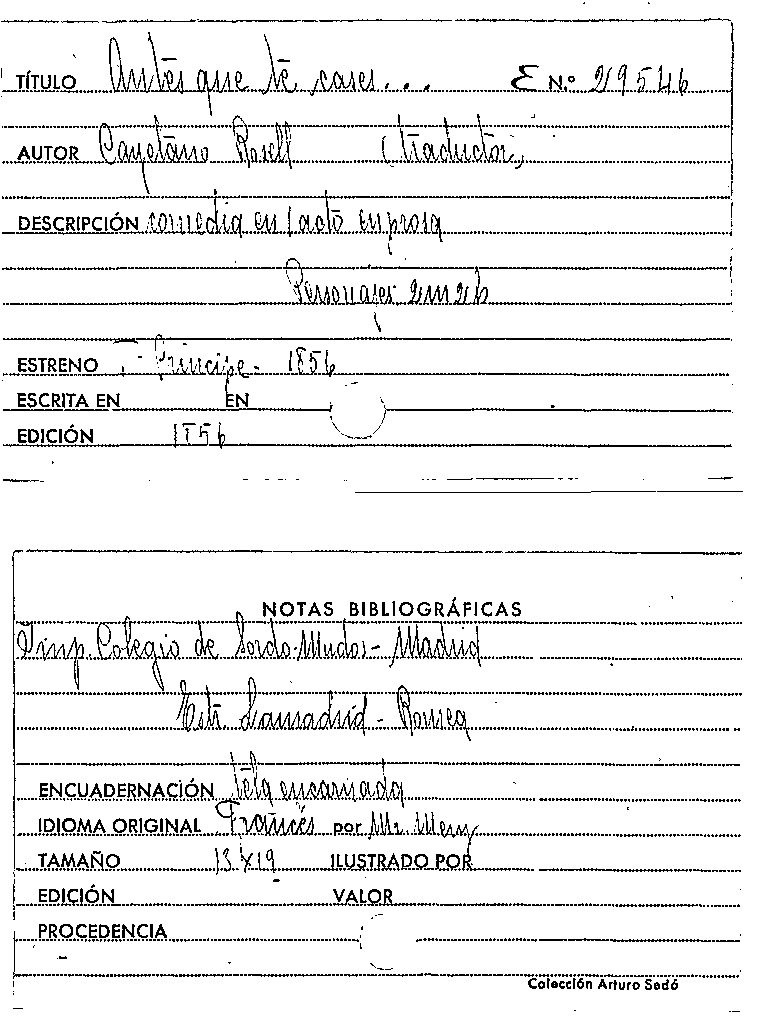 TÍTULO Antes que te cases... E N.º 29546
AUTOR Cayetano Rosell (traductor)
DESCRIPCIÓN comedia en 1 acto en prosa
Personajes 2m2h
ESTRENO T- Príncipe - 1856
ESCRITA EN EN
EDICIÓN 1856
NOTAS BIBLIOGRÁFICAS
Imp. Colegio de Sordo-Mudos - Madrid
Estr. Lamadrid - Romea
ENCUADERNACIÓN tela encarnada
IDIOMA ORIGINAL Francés por Mr. Mery
TAMAÑO 13 x 19 ILUSTRADO POR
EDICIÓN VALOR
PROCEDENCIA
Colección Arturo Sedó